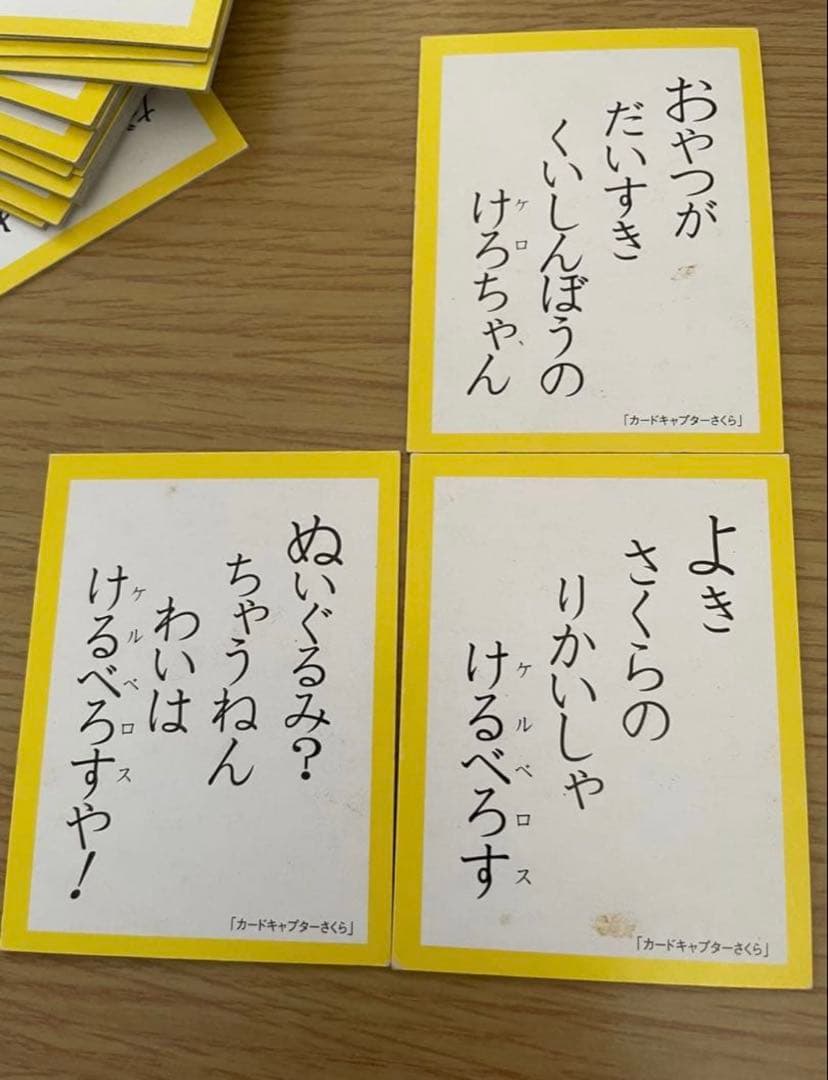 おやつが
だいすき
くいしんぼうの
けろちゃん
ケロ
「カードキャプターさくら」
ぬいぐるみ?
ちゃうねん
わいは
けるべろすや!
ケルベロス
「カードキャプターさくら」
よき
さくらの
りかいしゃ
けるべろす
ケルベロス
「カードキャプターさくら」